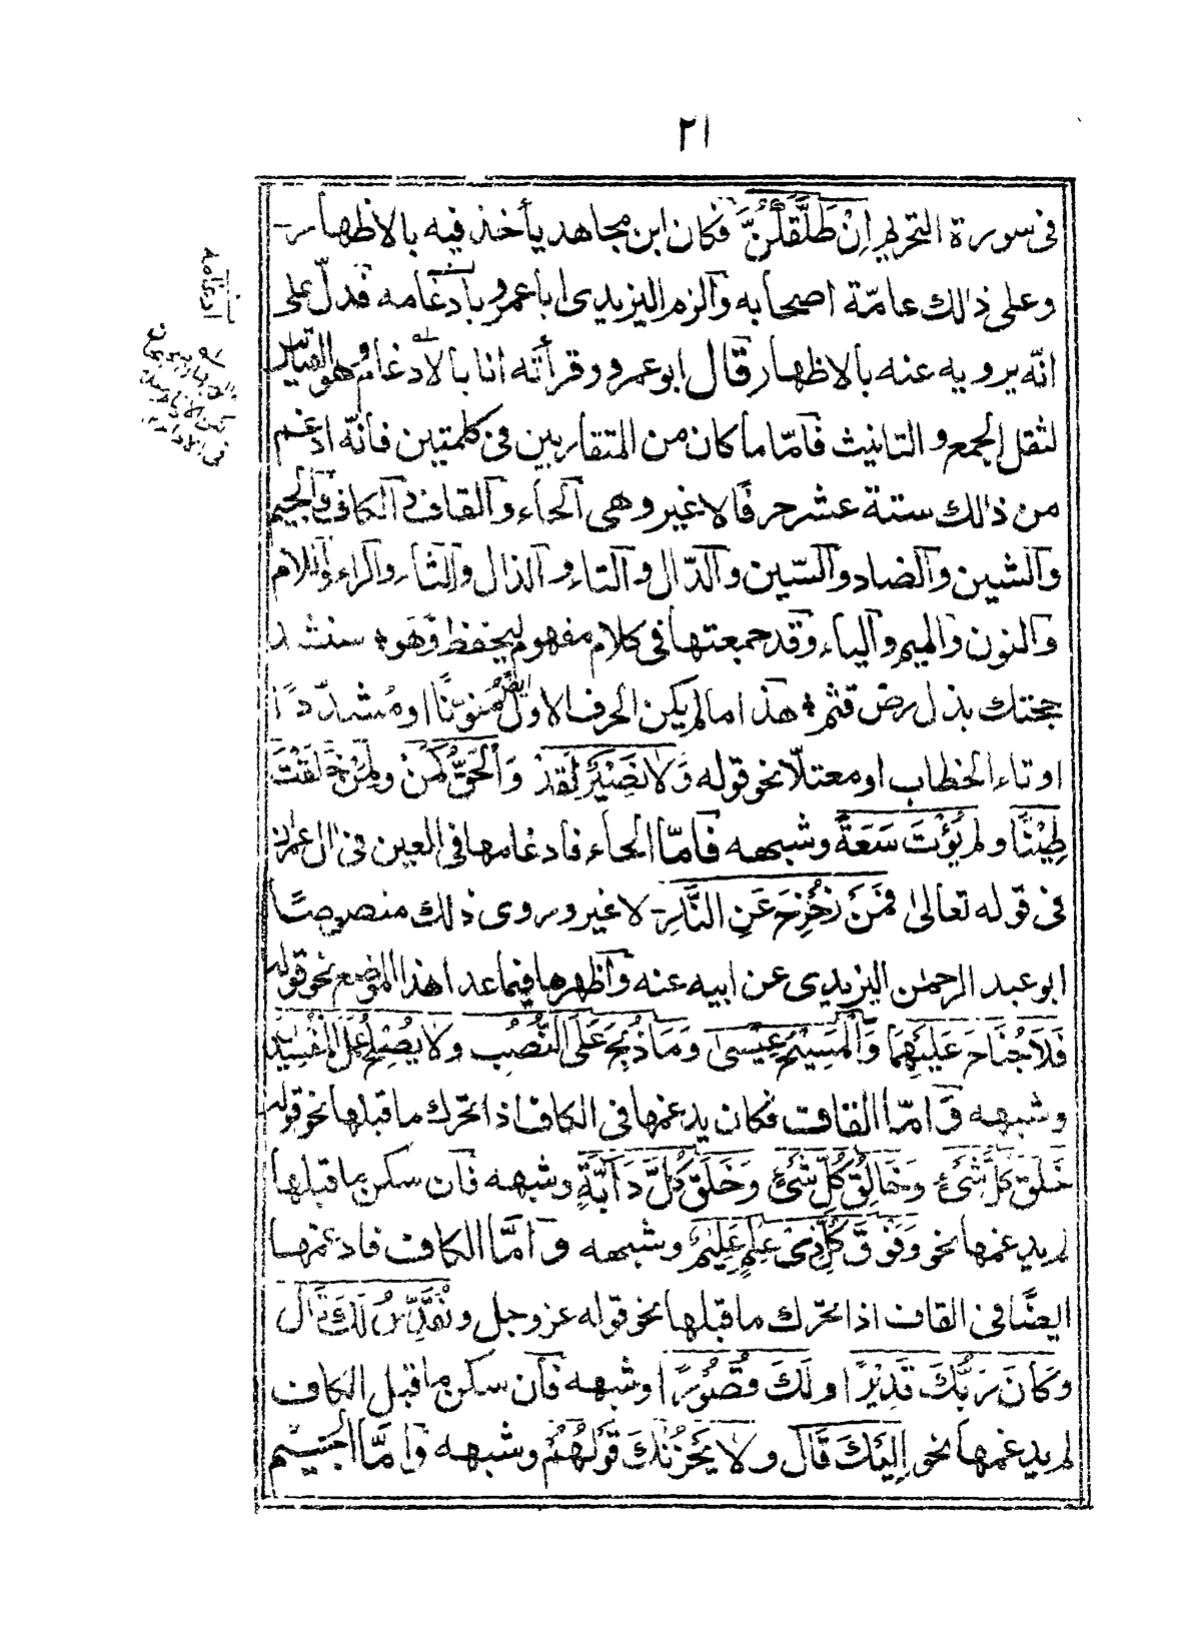 ٢١
فى سورة التحريم اِنْ طَلَّقَكُنَّ فكان ابن مجاهد يأخذ فيه بالاظهار
وعلى ذلك عامّة اصحابه وألزم اليزيدى ابا عمرو بادغامه فدلّ على
انّه يرويه عنه بالاظهار قال ابو عمرو وقرأته انا بالادغام وهو القياس
لثقل الجمع و التانيث فامّا ما كان من المتقاربين فى كلمتين فانّه ادغم
من ذلك ستة عشر حرفًا لا غير وهى الحاء والقاف و الكاف والجيم
والشين والضاد والسّين والدّال والتاء و الذال والثاء والراء واللام
والنون والميم والباء وقد جمعتها فى كلام مفهوم ليحفظ وهو سنشد
حجتك بذل رض قثم هذا ما لم يكن الحرف الاول ايضًا منونًا او مُشدّدًا
او تاء الخطاب او معتلّا نحو قوله وَلَا نَصِيْرٍ لَقَدْ وَالْحَقُّ كَمَنْ ولِمَنْ خَلَقْتَ
طِيْنًا و لم يُؤْتَ سَعَةً وشبهه فامّا الحاء فادغامها فى العين فى ال عمران
فى قوله تعالىٰ فَمَنْ زُحْزِحَ عَنِ النَّارِ لا غير وروى ذلك منصوصًا
ابو عبد الرحمٰن اليزيدى عن ابيه عنه واظهرها فيما عدا هذا الموضع نحو قوله
فَلَا جُنَاحَ عَلَيْهِمَا وَالْمَسِيْحُ عِيْسىٰ وَمَا ذُبِحَ عَلَى النُّصُبِ ولَا يُصْلِحُ عَمَلَ الْمُفْسِدِيْنَ
وشبهه وامّا القاف فكان يدغمها فى الكاف اذا تحرّك ما قبلها نحو قوله
خَلَقَ كُلَّ شَىْءٍ وَخَالِقُ كُلِّ شَىْءٍ وَخَلَقَ كُلَّ دَابَّةٍ وشبهه فان سكن ما قبلها
لم يدغمها نحو وَفَوْقَ كُلِّ ذِىْ عِلْمٍ عَلِيْمٌ وشبهه وامّا الكاف فادغمها
ايضًا فى القاف اذا تحرّك ما قبلها نحو قوله عز وجل و نُقَدِّسُ لَكَ قَالَ
وكَانَ رَبُّكَ قَدِيْرًا و لَكَ قُصُوْرًا وشبهه فان سكن ما قبل الكاف
لم يدغمها نحو اِلَيْكَ قَالَ و لَا يَحْزُنْكَ قَوْلُهُمْ وشبهه وامَّا الجيم
ادغامه